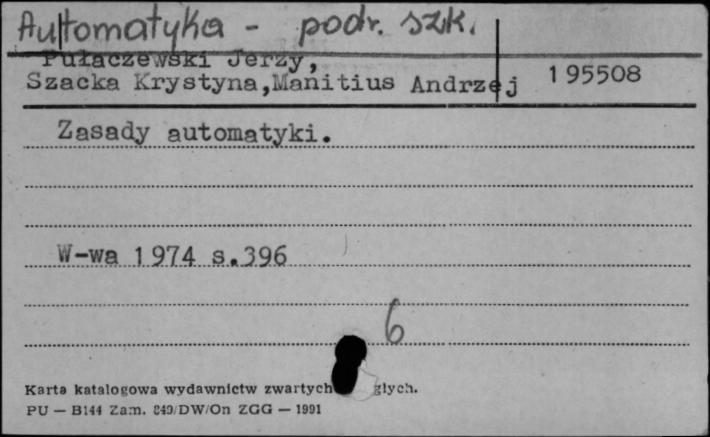 Automatyka - podr. szk.
Pułaczewski Jerzy,
Szacka Krystyna,Manitius Andrzej 195508
Zasady automatyki.
W-wa 1974 s.396
6
Karta katalogowa wydawnictw zwartych głych.
PU — B144 Zam. 849/DW/On ZGG — 1991